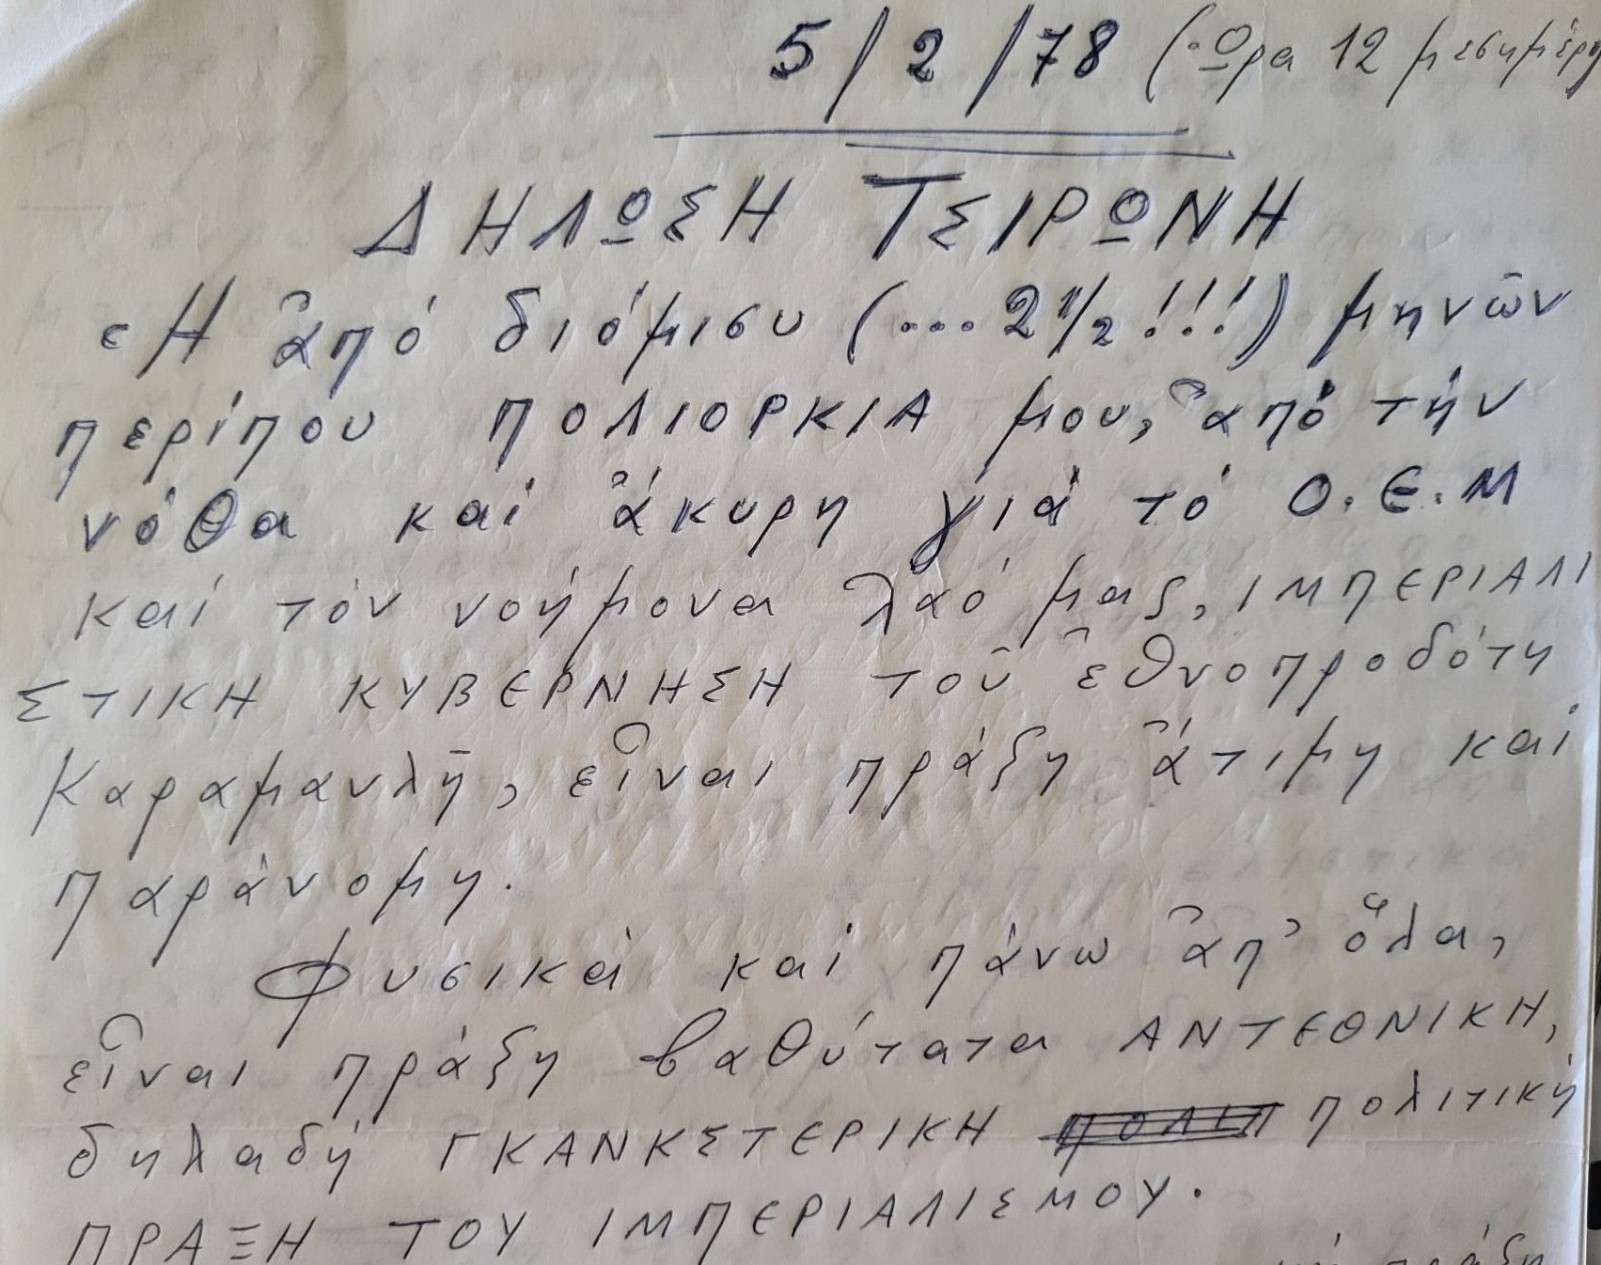 5/2/78 (Ὥρα 12 μεσημέρι
ΔΗΛΩΣΗ ΤΣΕΙΡΩΝΗ
Ἡ ἀπό διόμισυ (...2 1/2 !!!) μηνῶν
περίπου ΠΟΛΙΟΡΚΙΑ μου, ἀπό τήν
νόθα καί ἄκυρη γιά τό Ο.Ε.Μ
καί τόν νοήμονα λαό μας, ΙΜΠΕΡΙΑΛΙ
ΣΤΙΚΗ ΚΥΒΕΡΝΗΣΗ τοῦ ἐθνοπροδότη
Καραμανλῆ, εἶναι πράξη ἄτιμη καί
παράνομη.
Φυσικά καί πάνω ἀπ' ὅλα,
εἶναι πράξη βαθύτατα ΑΝΤΕΘΝΙΚΗ,
δηλαδή ΓΚΑΝΚΣΤΕΡΙΚΗ πολιτική
ΠΡΑΞΗ ΤΟΥ ΙΜΠΕΡΙΑΛΙΣΜΟΥ.
πράξη